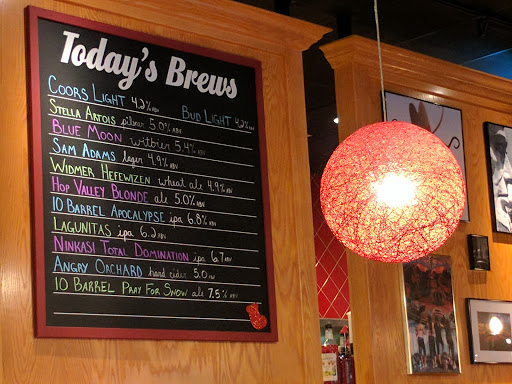 Today's Brews
Coors Light 4.2% ABV Bud Light 4.2% ABV
Stella Artois pilsner 5.0% ABV
Blue Moon witbier 5.4% ABV
Sam Adams lager 4.9% ABV
Widmer Hefewizen wheat ale 4.9% ABV
Hop Valley Blonde ale 5.0% ABV
10 Barrel Apocalypse ipa 6.8% ABV
Lagunitas ipa 6.2 ABV
Ninkasi Total Domination ipa 6.7 ABV
Angry Orchard hard cider 5.0 ABV
10 Barrel Pray For Snow ale 7.5% ABV